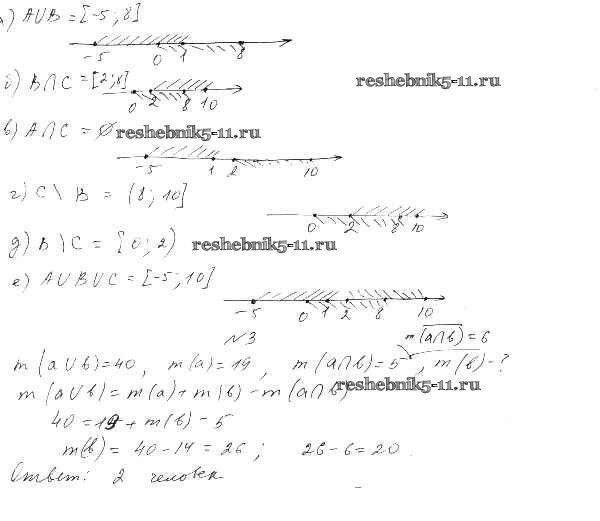 а) A∪B = [-5; 8]
-5 0 1 8
б) B∩C = [2; 8]
0 2 8 10
reshebnik5-11.ru
в) A∩C = ∅ reshebnik5-11.ru
-5 1 2 10
г) C \ B = (8; 10]
0 2 8 10
д) B \ C = [0; 2) reshebnik5-11.ru
е) A∪B∪C = [-5; 10]
-5 0 1 2 8 10
№3
m(a∩b) = 6
m(a∪b)=40, m(a)=19, m(a∩b)=5, m(b)-?
m(a∪b)=m(a)+m(b)-m(a∩b)
reshebnik5-11.ru
40=19+m(b)-5
m(b)= 40-14 = 26; 26-6=20.
Ответ: 2 человек